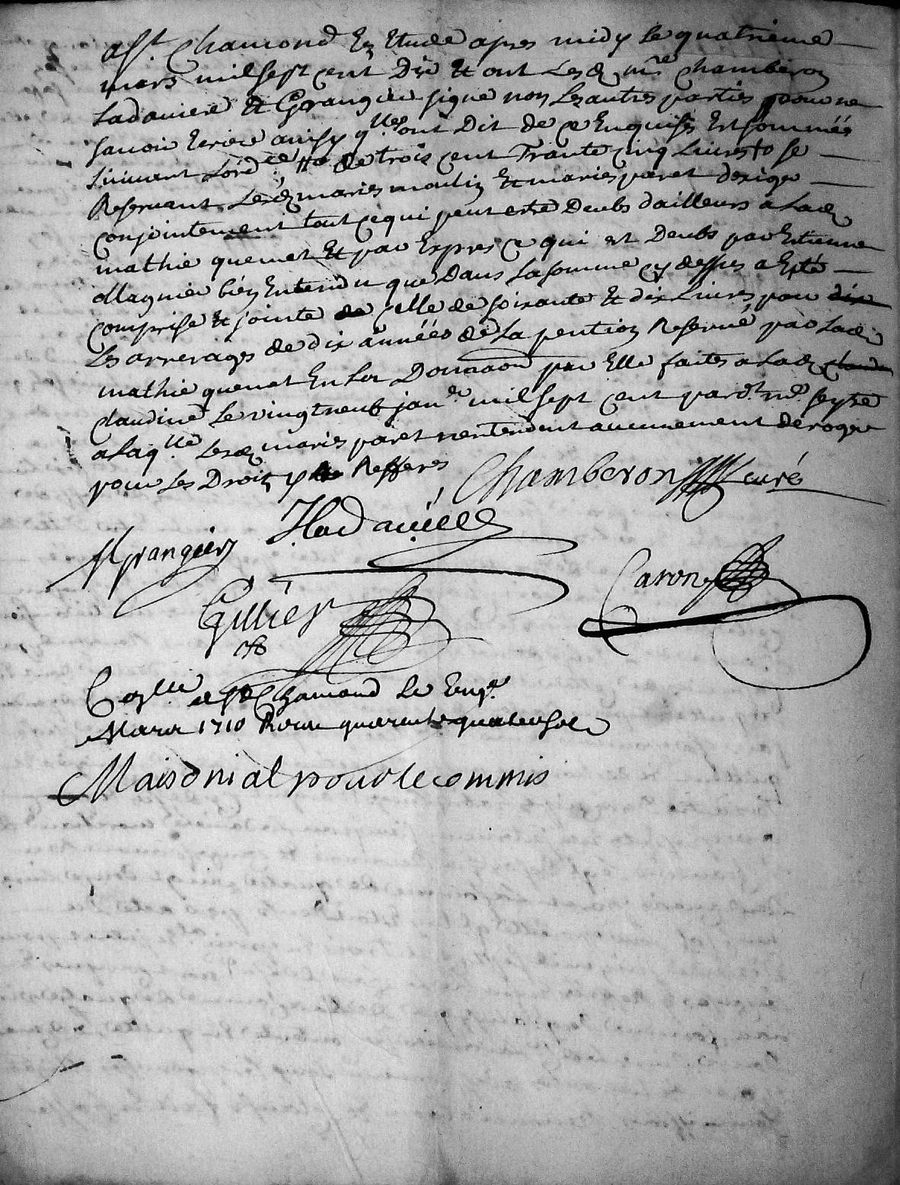 a St. Chamond En Etude apres midy le quatrieme
mars mil sept cent Dix Et ont Lesd. mre chamberon
Ladaviere Et Grangier signe non Les autres parties pour ne
savoir Escrire ainsy qlles ont Dit de ce Enquises Et sommées
suivant Lord.ce de trois cent Trante cinq Livres se
Reservant Lesd. maries moulin Et maries paret desige
conjointement tout ce qui peut estre Deubs dailleurs a Lad.
mathie quemet Et par Expres ce qui est Deubs par Estienne
Magnier bien Entendu que Dans La somme cy desses a Esté
comprise Et jointe celle de soixante Et dix Livres pour dix
Les arrerages de dix années de La pention Reservé par Lad.
mathie quemet En La Donnaon par Elle faites a Lad.
claudine Le vingtneuf janr. mil sept cent pard.t me. seyve
a Laqlle Lesd. maries paret nentendent aucunement deroger
pour Les Droits y Refferes Chamberon curé
Grangier Ladavière
Gillier Caron
Coslle a St Chamond Le
Mars 1710 Receu quarente quatre sols
Maisonial pour le commis